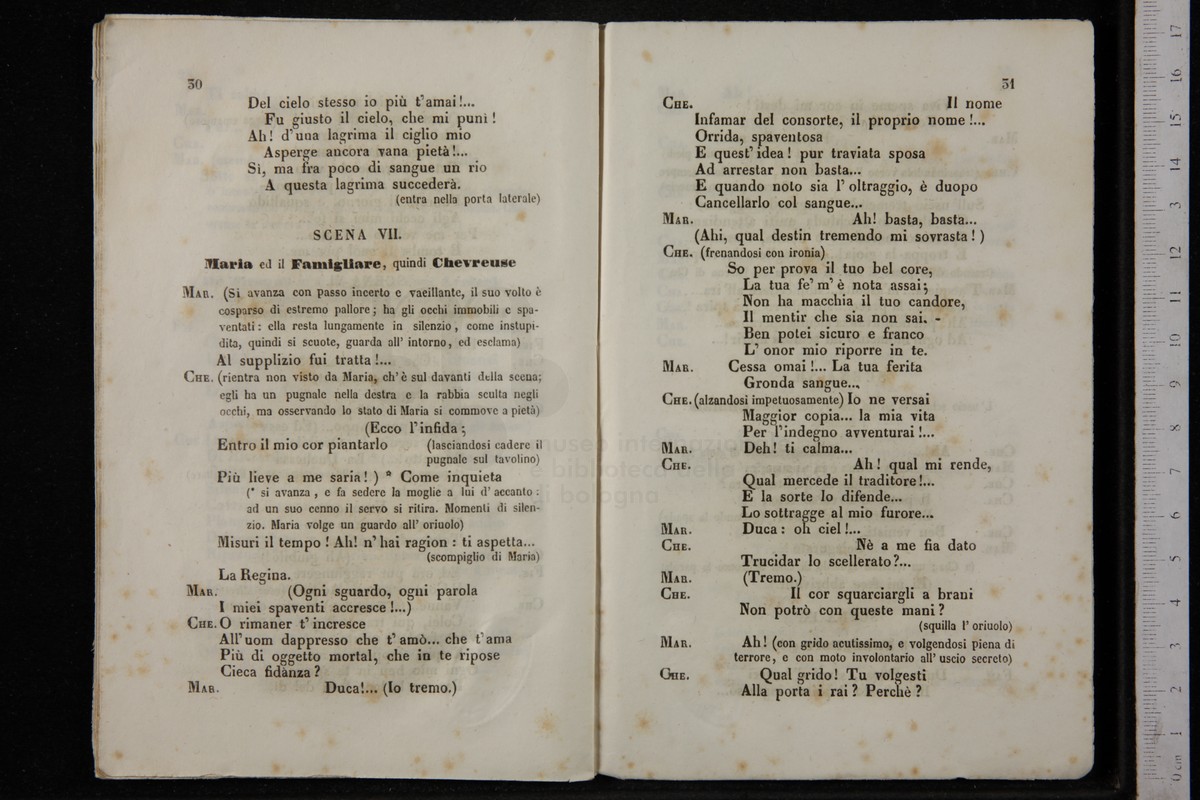 30
Del cielo stesso io più t'amai!...
Fu giusto il cielo, che mi punì!
Ah! d'una lagrima il ciglio mio
Asperge ancora vana pietà!...
Sì, ma fra poco di sangue un rio
A questa lagrima succederà.
(entra nella porta laterale)
SCENA VII.
Maria ed il Famigliare, quindi Chevreuse
MAR. (Si avanza con passo incerto e vacillante, il suo volto è
cosparso di estremo pallore; ha gli occhi immobili e spa-
ventati: ella resta lungamente in silenzio, come instupi-
dita, quindi si scuote, guarda all' intorno, ed esclama)
Al supplizio fui tratta!...
CHE. (rientra non visto da Maria, ch'è sul davanti della scena;
egli ha un pugnale nella destra e la rabbia sculta negli
occhi, ma osservando lo stato di Maria si commove a pietà)
(Ecco l'infida;
Entro il mio cor piantarlo (lasciandosi cadere il
pugnale sul tavolino)
Più lieve a me saria! ) * Come inquieta
(* si avanza, e fa sedere la moglie a lui d' accanto:
ad un suo cenno il servo si ritira. Momenti di silen-
zio. Maria volge un guardo all' oriuolo)
Misuri il tempo! Ah! n'hai ragion: ti aspetta...
(scompiglio di Maria)
La Regina.
MAR. (Ogni sguardo, ogni parola
I miei spaventi accresce!...)
CHE. O rimaner t'incresce
All'uom dappresso che t'amò... che t'ama
Più di oggetto mortal, che in te ripose
Cieca fidanza?
MAR. Duca!... (Io tremo.)
31
CHE. Il nome
Infamar del consorte, il proprio nome!...
Orrida, spaventosa
E quest'idea! pur traviata sposa
Ad arrestar non basta...
E quando noto sia l'oltraggio, è duopo
Cancellarlo col sangue...
MAR. Ah! basta, basta...
(Ahi, qual destin tremendo mi sovrasta!)
CHE. (frenandosi con ironia)
So per prova il tuo bel core,
La tua fe' m'è nota assai;
Non ha macchia il tuo candore,
Il mentir che sia non sai. -
Ben potei sicuro e franco
L'onor mio riporre in te.
MAR. Cessa omai!... La tua ferita
Gronda sangue...
CHE. (alzandosi impetuosamente) Io ne versai
Maggior copia... la mia vita
Per l'indegno avventurai!...
MAR. Deh! ti calma...
CHE. Ah! qual mi rende,
Qual mercede il traditore!...
E la sorte lo difende...
Lo sottragge al mio furore...
MAR. Duca: oh ciel!...
CHE. Nè a me fia dato
Trucidar lo scellerato?...
MAR. (Tremo.)
CHE. Il cor squarciargli a brani
Non potrò con queste mani?
(squilla l'oriuolo)
MAR. Ah! (con grido acutissimo, e volgendosi piena di
terrore, e con moto involontario all'uscio secreto)
CHE. Qual grido! Tu volgesti
Alla porta i rai? Perchè?
museo internazionale
e biblioteca della musica
di bologna
0 cm 1 2 3 4 5 6 7 8 9 10 11 12 13 14 15 16 17